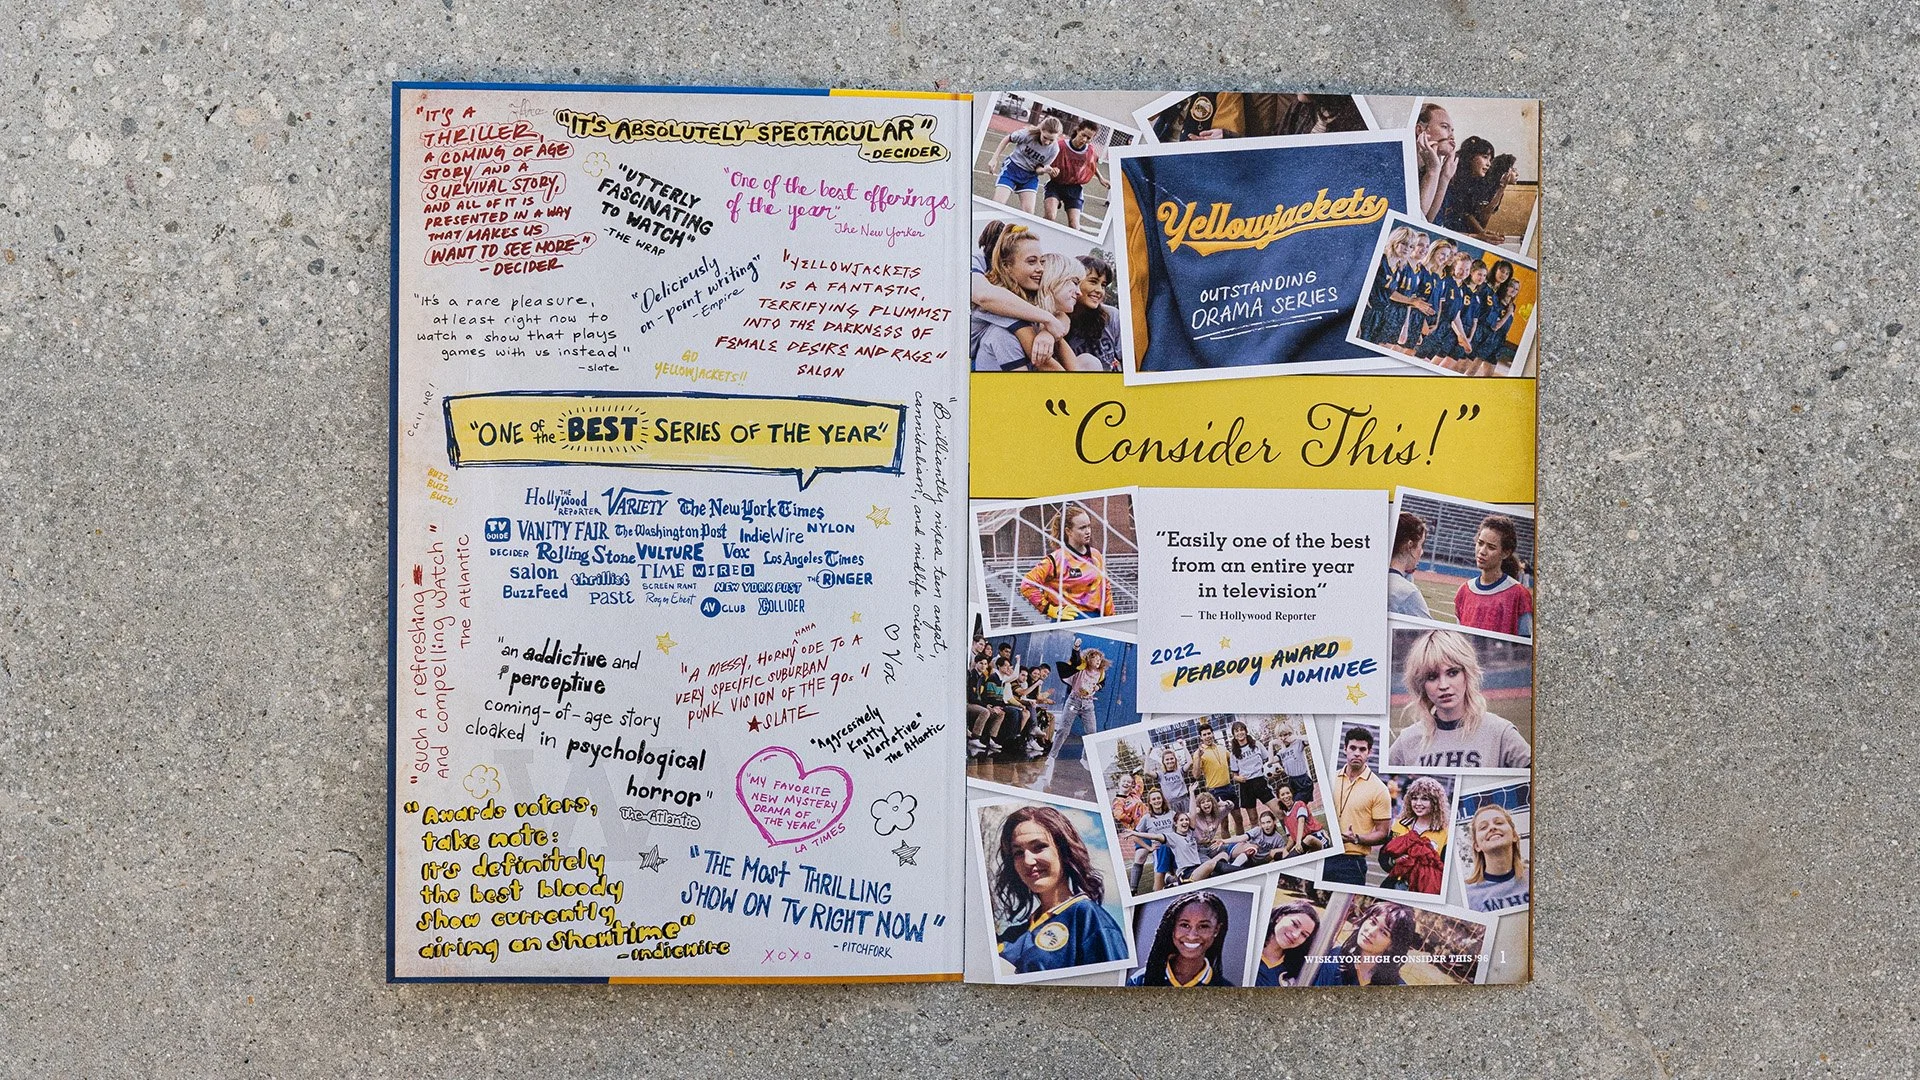 "IT'S A
THRILLER,
A COMING OF AGE
STORY AND A
SURVIVAL STORY,
AND ALL OF IT IS
PRESENTED IN A WAY
THAT MAKES US
WANT TO SEE MORE"
- DECIDER
"IT'S ABSOLUTELY SPECTACULAR"
- DECIDER
"UTTERLY
FASCINATING
TO WATCH"
- THE WRAP
"One of the best offerings
of the year"
The New Yorker
"It's a rare pleasure,
at least right now to
watch a show that plays
games with us instead"
- slate
"Deliciously
on-point writing"
- Empire
"YELLOWJACKETS
IS A FANTASTIC,
TERRIFYING PLUMMET
INTO THE DARKNESS OF
FEMALE DESIRE AND RAGE"
SALON
GO
YELLOWJACKETS!!
Call Me!
"ONE of the BEST SERIES OF THE YEAR"
BUZZ
BUZZ
BUZZ!
"Brilliantly mixes teen angst,
cannibalism, and midlife crises"
♡ Vox
The Hollywood REPORTER VARIETY The New York Times
TV GUIDE VANITY FAIR The Washington Post IndieWire NYLON
DECIDER Rolling Stone VULTURE Vox Los Angeles Times
salon thrillist TIME WIRED THE RINGER
BuzzFeed PASTE SCREEN RANT NEW YORK POST
Roger Ebert AV CLUB COLLIDER
"such a refreshing
and compelling watch"
The Atlantic
"an addictive and
perceptive
coming-of-age story
cloaked in psychological
horror"
The Atlantic
HAHA
"A MESSY, HORNY ODE TO A
VERY SPECIFIC SUBURBAN
PUNK VISION OF THE 90s"
★SLATE
"Aggressively
Knotty
Narrative"
The Atlantic
"MY FAVORITE
NEW MYSTERY
DRAMA OF
THE YEAR"
LA TIMES
"Awards voters,
take note:
It's definitely
the best bloody
show currently
airing on Showtime"
- IndieWire
"THE MOST THRILLING
SHOW ON TV RIGHT NOW"
- PITCHFORK
XOXO
Yellowjackets
OUTSTANDING
DRAMA SERIES
"Consider This!"
"Easily one of the best
from an entire year
in television"
— The Hollywood Reporter
2022
PEABODY AWARD
NOMINEE
WHS
WHS
WISKAYOK HIGH CONSIDER THIS '96 1